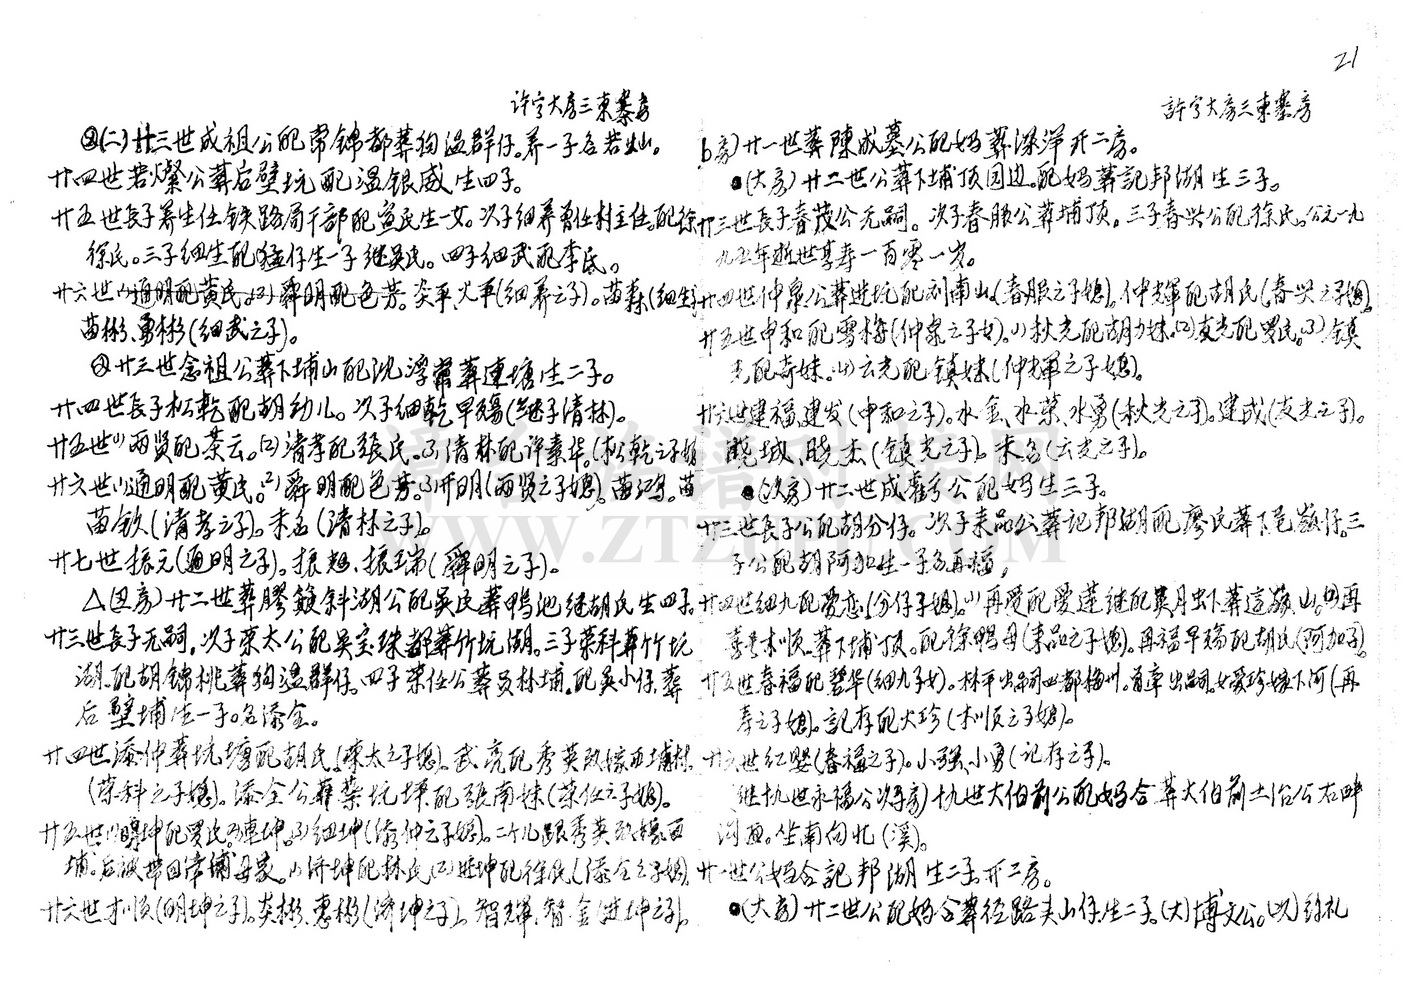 21
許宁大房三東寨房
②(二)廿三世成祖公配常锦都葬狗温群仔。养一子名若灿。
廿四世若燦公葬后壁坑配温银威生四子。
廿五世長子养生任铁路局干部配 氏生一女。次子细养曾任村主任。配徐
徐氏。三子细生配猛仔生一子继吴氏。四子细武配李氏。
廿六世(1)通明配黄民。(2)舜明配色芳。炎平、火平(细养之子)。苗森(细生子)
苗彬、勇彬(细武之子)。
②廿三世念祖公葬下埔山配沈浮常葬連塘生二子。
廿四世長子松乾配胡幼儿。次子细乾早殤(继子清林)。
廿五世(1)两贤配茶云。(2)清孝配張氏。(3)清林配许素华。(松乾之子媳
廿六世(1)通明配黄民。(2)舜明配色芳。(3)开明(两贤之子媳)。苗鸿。苗
苗钦(清孝之子)。未名(清林之子)。
廿七世振元(通明之子)。振旭、振瑞(舜明之子)。
△(四房)廿二世葬膠鏝斜湖公配吴氏葬鴨池继胡氏生四子。
廿三世長子无嗣。次子荣太公配吴宝珠都葬竹坑湖。三子荣科葬竹坑
湖。配胡锦桃葬狗温群仔。四子荣任公葬员林埔。配吴小仔葬
后壁埔生一子。名添全。
廿四世添仲葬坑塘配胡氏(荣太之子媳)。武亮配秀英改嫁西埔村。
(荣科之子媳)。添全公葬菜坑坪配張南妹(荣任之子媳)。
廿五世(1)明坤配罗氏。(2)連坤。(3)细坤(添仲之子媳)。二个儿跟秀英改嫁西
埔。后被带回 母家。(1)济坤配林氏(2)进坤配徐氏(添全之子媳)
廿六世才順(明坤之子)。炎彬、惠彬(济坤之子)。智輝、智金(进坤之子)。
許宁大房三東寨房
b房)廿一世葬陳成墓公配妈葬深洋开二房。
●(大房)廿二世公葬下埔顶园边。配妈葬記邦湖生三子。
廿三世長子春茂公无嗣。次子春服公葬埔顶。三子春兴公配徐氏。公元一九
九五年逝世享寿一百零一岁。
廿四世仲泉公葬进坑配刘南山(春服之子媳)。仲輝配胡氏(春兴之子媳)。
廿五世申和配雪梅(仲泉之子女)。(1)秋光配胡力妹。(2)友光配罗民。(3)镇
光配奇妹。(4)云光配镇妹(仲輝之子媳)。
廿六世建福、建发(申和之子)。水金、水荣、水勇(秋光之子)。建成(友光之子)。
晓城、晓杰(镇光之子)。未名(云光之子)。
●(次房)廿二世成 公配妈生三子。
廿三世長子公配胡分仔。次子来品公葬記邦湖配廖民葬下尾嶺仔。三
子公配胡阿加生一子名再福。
廿四世细九配爱恋(分仔子媳)。(1)再受配爱蓮继配吴月出下葬這 山。(2)再
寿号木順。葬下埔顶。配徐鴨母(来品之子媳)。再福早殤配胡氏(阿加子)
廿五世春福配碧华(细九子女)。林平出嗣四都梅州。 章出嗣。女爱珍嫁下河(再
寿之子媳)。記存配火珍(木順之子媳)。
廿六世红婴(春福之子)。小强、小勇(记存之子)。
(继十九世永福公次房)十九世大伯前公配妈合葬大伯前土治公右畔
河 。坐南向北(溪)。
廿一世公妈合記邦湖生二子开二房。
●(大房)廿二世公配妈合葬径路夹山仔。生二子。(大)博文公。(次)約礼
漳台族譜对接网
WWW.ZTZUPU.COM